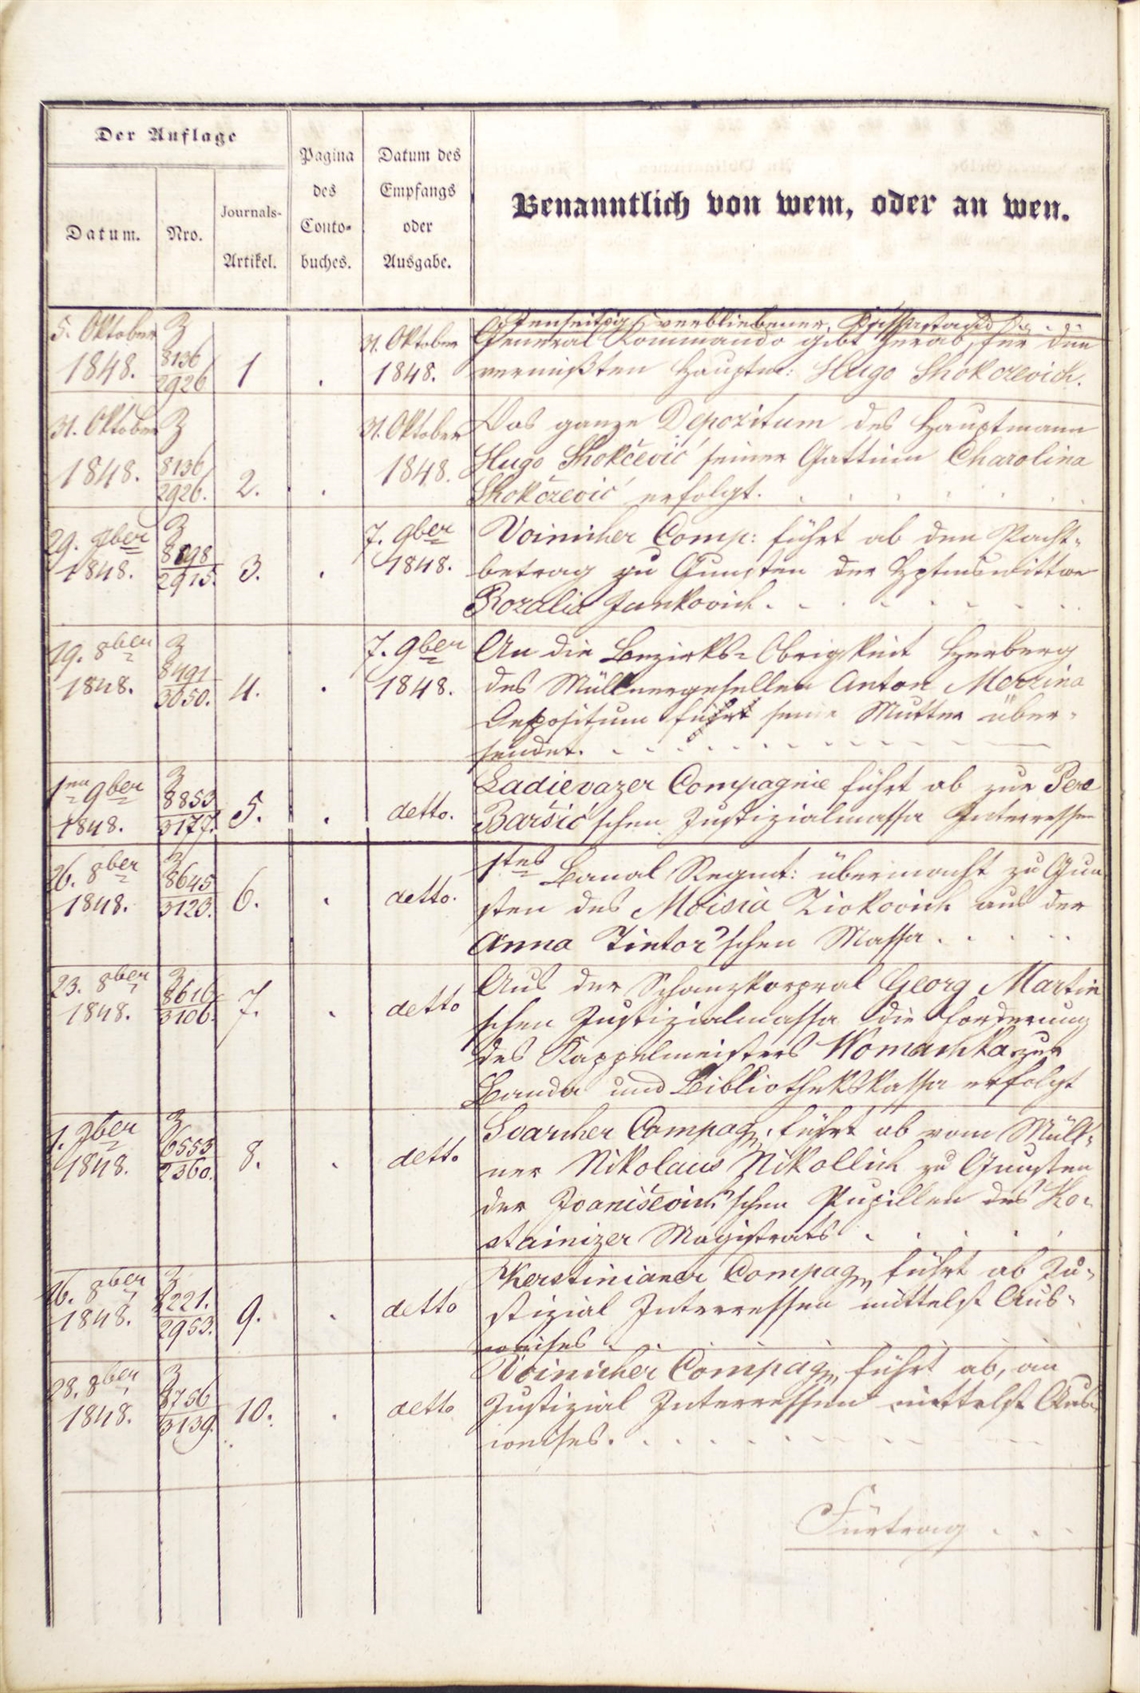 Der Auflage
Datum.
Nro.
Journals-
Artikel.
Pagina
des
Conto-
buches.
Datum des
Empfangs
oder
Ausgabe.
Benanntlich von wem, oder an wen.
Jenseitig verbliebener Kassastand
5. Oktober 1848.
Z 8136/2926
1
31. Oktober 1848.
General Kommando gibt herab, für den
vermißten Hauptm: Hugo Shokczevich.
31. Oktober 1848.
Z 8136/2926.
2.
31. Oktober 1848.
Das ganze Depozitum des Hauptmann
Hugo Shokčević seiner Gattin Charolina
Shokczević erfolgt.
29. 7ber 1848.
Z 8098/2915.
3.
7. 9ber 1848.
Voinicher Comp: führt ab den Pacht-
betrag zu Gunsten der Hptmswittwe
Rozalia Jankovich.
19. 8ber 1848.
Z 8491/3050.
4.
7. 9ber 1848.
An die Bezirks-Obrigkeit Herberg
des Müllnergesellen Anton Merzina
Depositum für seine Mutter über-
sendet.
1ten 9ber 1848.
Z 8853/3177.
5.
detto.
Ladievazer Compagnie führt ab zur Pera
Barsić'schen Justizialmassa Interessen
26. 8ber 1848.
Z 8645/3123.
6.
detto.
1tes Banal Regmt: übermacht zu Gun
sten des Moisia Ziokovich aus der
Anna Tintor'schen Massa.
23. 8ber 1848.
Z 8616/3106.
7.
detto
Aus der Schanzkorporal Georg Martin
schen Justizialmassa die Forderung
des Kappelmeisters Womachka zur
Banda und Bibliothekskassa erfolgt
1. 9ber 1848.
Z 6553/2360.
8.
detto
Svarcher Compag. führt ab vom Müll-
ner Nikolaus Nikollich zu Gunsten
der Joanisevich'schen Pupillen des Ko-
stainizer Magistrats
26. 8ber 1848.
Z 8221./2953.
9.
detto
Kerstinianer Compag. führt ab Ju-
stizial Interressen mittelst Aus-
weises.
28. 8ber 1848.
Z 8756/3139.
10.
detto
Voinicher Compag. führt ab, an
Justizial Interressen mittelst Aus-
weises.
Fürtrag . . .